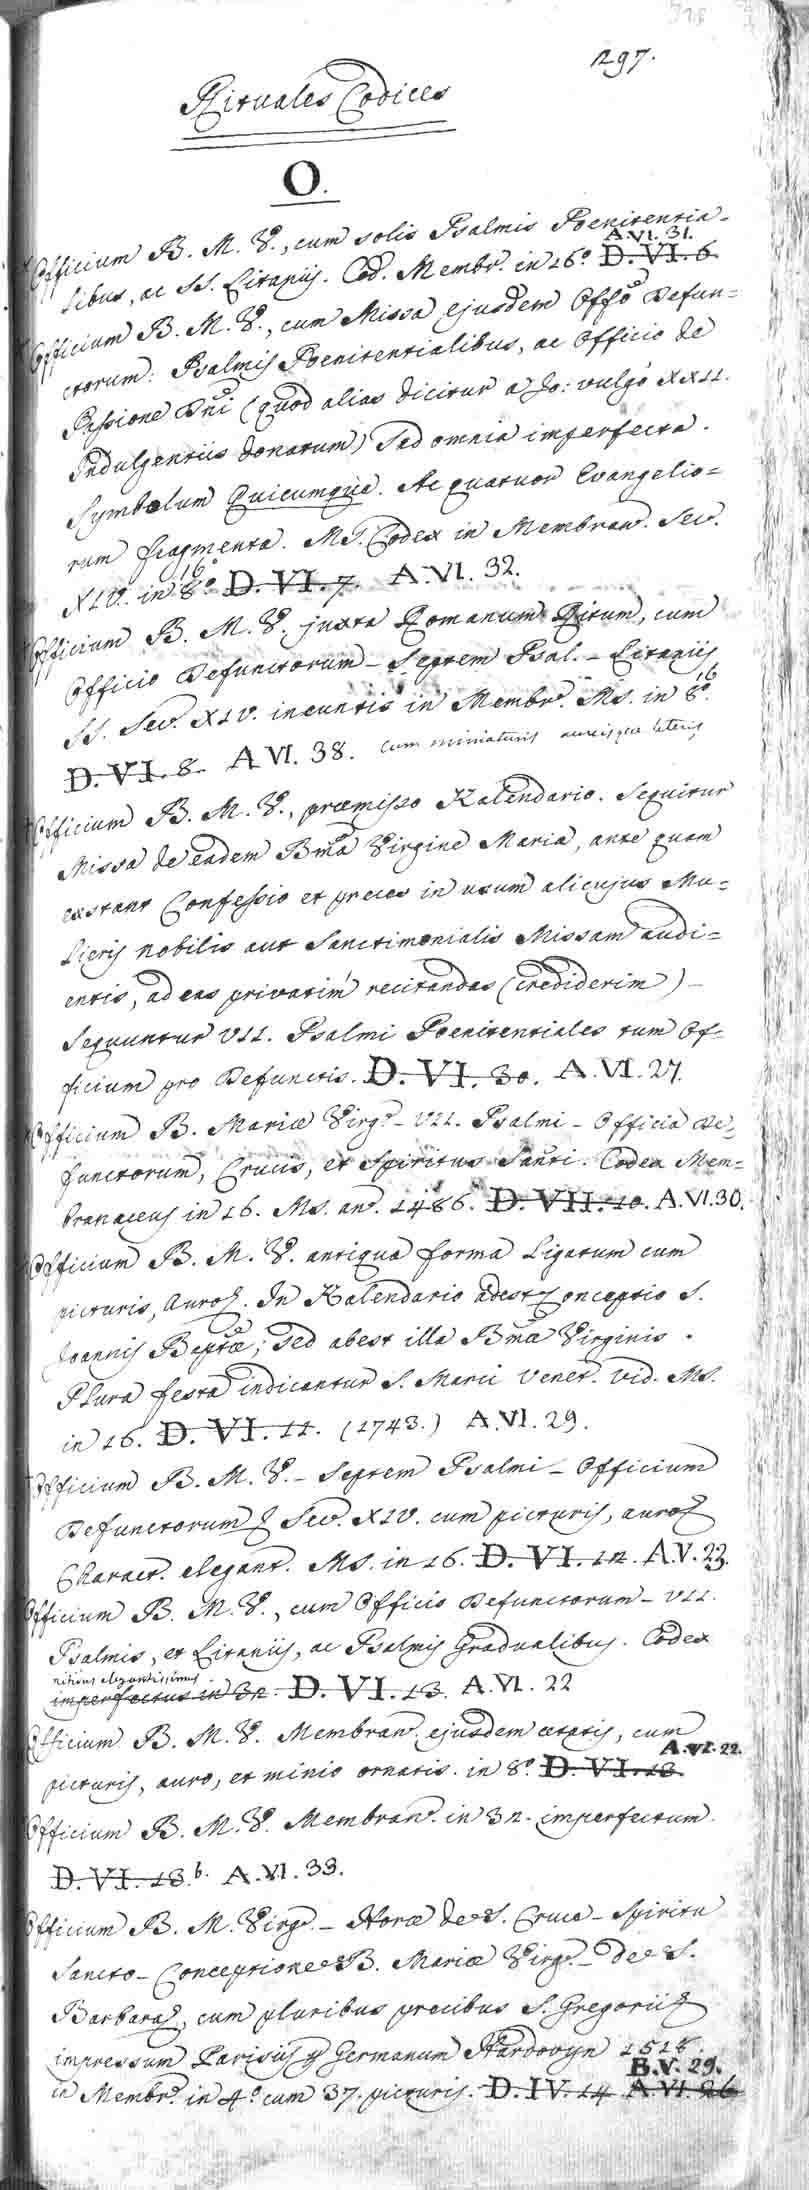 297.
Rituales Codices
O.
Officium B. M. V., cum solis Psalmis Poenitentia-
A.VI. 31.
libus, ac SS. Litaniis. Cod. Membr. in 16.º D.VI.6.
Officium B. M. V., cum Missa ejusdem Offo Defun=
ctorum: Psalmis Poenitentialibus, ac Officio de
Passione Dni (quod alias dicitur a Jo: vulgò XXII.
Indulgentiis donatum) Sed omnia imperfecta.
Symbolum Quicumque. Ac quatuor Evangelio=
rum fragmenta. MS. Codex in Membran. Sec.
16º
XIV. in 8.º D.VI.7. A.VI. 32.
Officium B. M. V. juxta Romanum Ritum, cum
Officio Defunctorum - Septem Psal. - Litaniis
SS. Sec. XIV. ineuntis in Membr. MS. in 8.º 16
D.VI.8. A VI. 38. cum miniaturis aureisque literis
Officium B. M. V., præmisso Kalendario. Sequitur
Missa de eadem Bma Virgine Maria, ante quam
exstant Confessio et preces in usum alicujus Mu=
lieris nobilis aut Sanctimonialis Missam audi=
entis, ad eas privatim recitandas (crediderim) -
Sequuntur VII. Psalmi Poenitentiales tum Of-
ficium pro Defunctis. D.VI.30. A.VI.27.
Officium B. Mariæ Virg. - VII. Psalmi - Officia De=
functorum, Crucis, et Spiritus Sancti. Codex Mem=
branaceus in 16. MS. an. 1486. D.VII.10. A.VI.30.
Officium B. M. V. antiqua forma ligatum cum
picturis, auroq. In Kalendario adest Conceptio S.
Joannis Baptæ; sed abest illa Bmæ Virginis.
Plura festa indicantur S. Marci Venet. Vid. MS.
in 16. D.VI.11. (1743.) A.VI.29.
Officium B. M. V. - Septem Psalmi - Officium
Defunctorum Sec. XIV. cum picturis, auroq
Charact. elegant. MS. in 16. D.VI.12. A.V.23.
Officium B. M. V., cum Officio Defunctorum - VII.
Psalmis, et Litaniis, ac Psalmis Gradualibus. Codex
nitidus elegantissimus
imperfectus in 32. D.VI.13. A.VI. 22
Officium B. M. V. Membran. ejusdem ætatis, cum
A.VI.22.
picturis, auro, et minio ornatis. in 8.º D.VI.13.
Officium B. M. V. Membran. in 32. imperfectum.
D.VI.13.b. A.VI.33.
Officium B. M. Virg. - Horæ de S. Cruce - Spiritu
Sancto - Conceptione B. Mariæ Virg. - de S.
Barbara, cum pluribus precibus S. Gregorii
impressum Parisiis p Germanum Hardouyn 1518.
B.V. 29.
in Membr. in 4.º cum 37. picturis. D.IV.14 A.VI.26